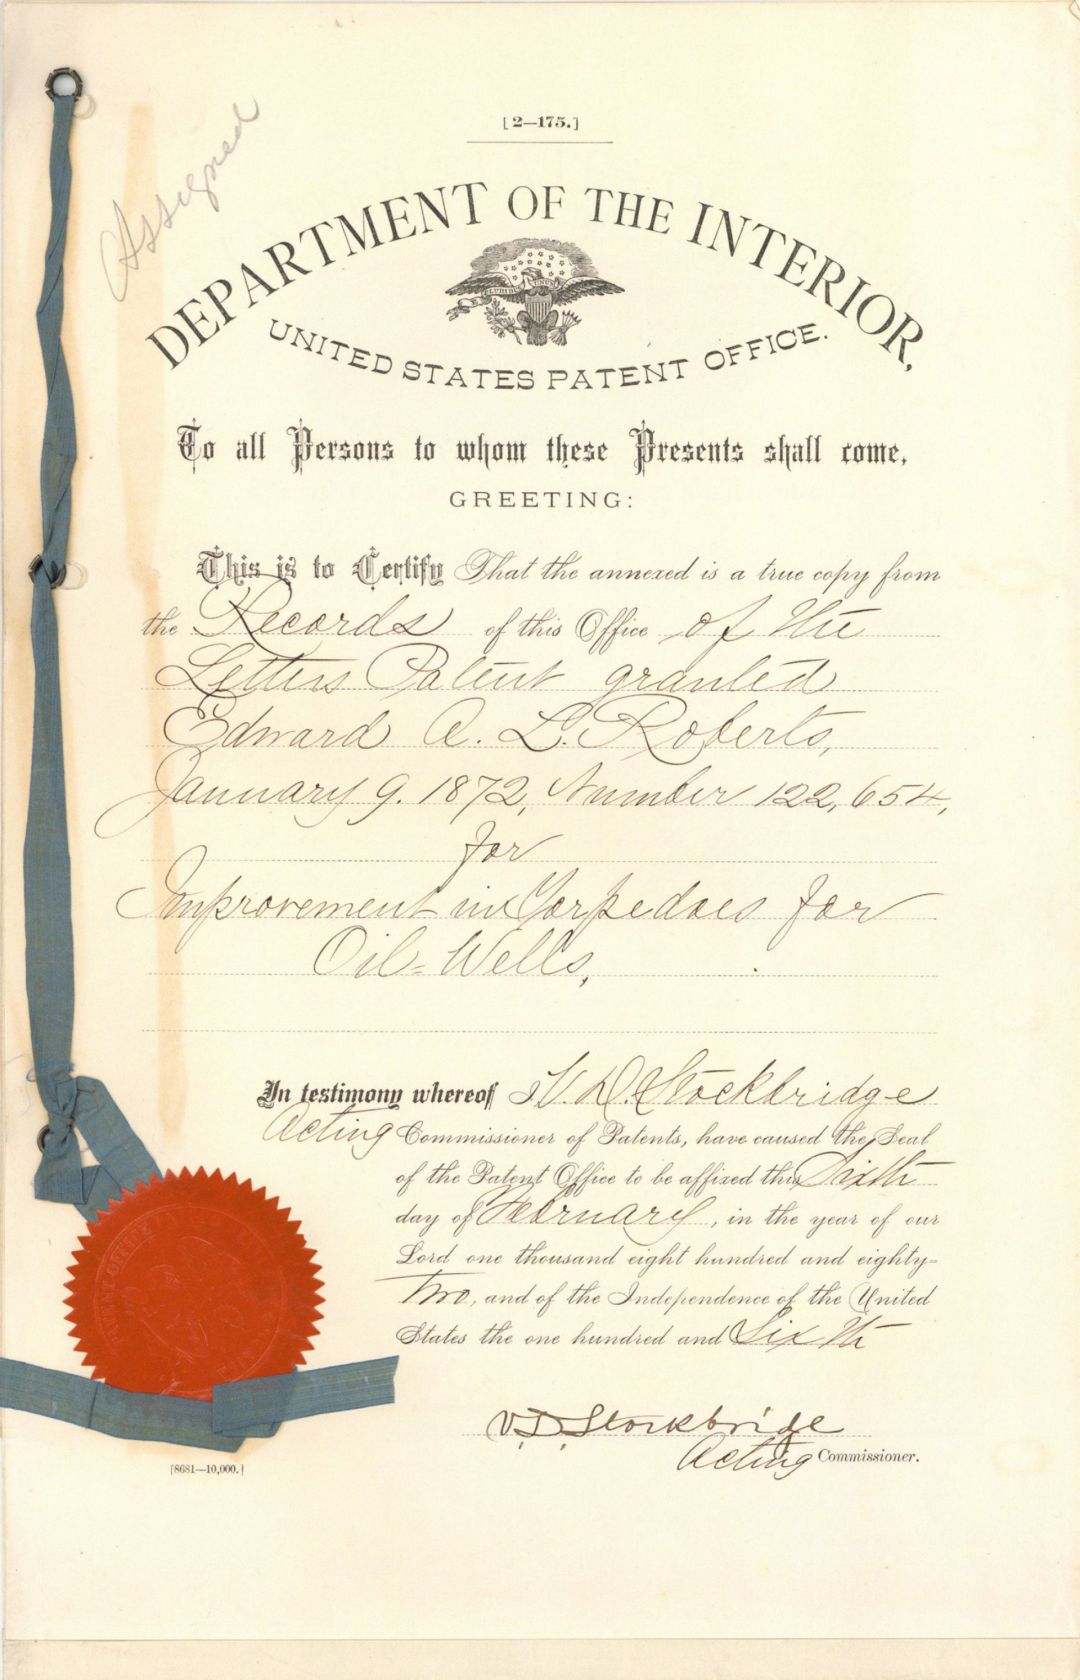 [2—175.]
Assigned
DEPARTMENT OF THE INTERIOR,
UNITED STATES PATENT OFFICE.
To all Persons to whom these Presents shall come,
GREETING:
This is to Certify That the annexed is a true copy from
the Records of this Office of the
Letters Patent granted
Edward A. L. Roberts,
January 9. 1872, Number 122,654,
for
Improvement in Torpedoes for
Oil=Wells,
In testimony whereof I V. D. Stockbridge
Acting Commissioner of Patents, have caused the Seal
of the Patent Office to be affixed this Sixth
day of February, in the year of our
Lord one thousand eight hundred and eighty=
Two, and of the Independence of the United
States the one hundred and Sixth
V. D. Stockbridge
Acting Commissioner.
[8681—10,000.]